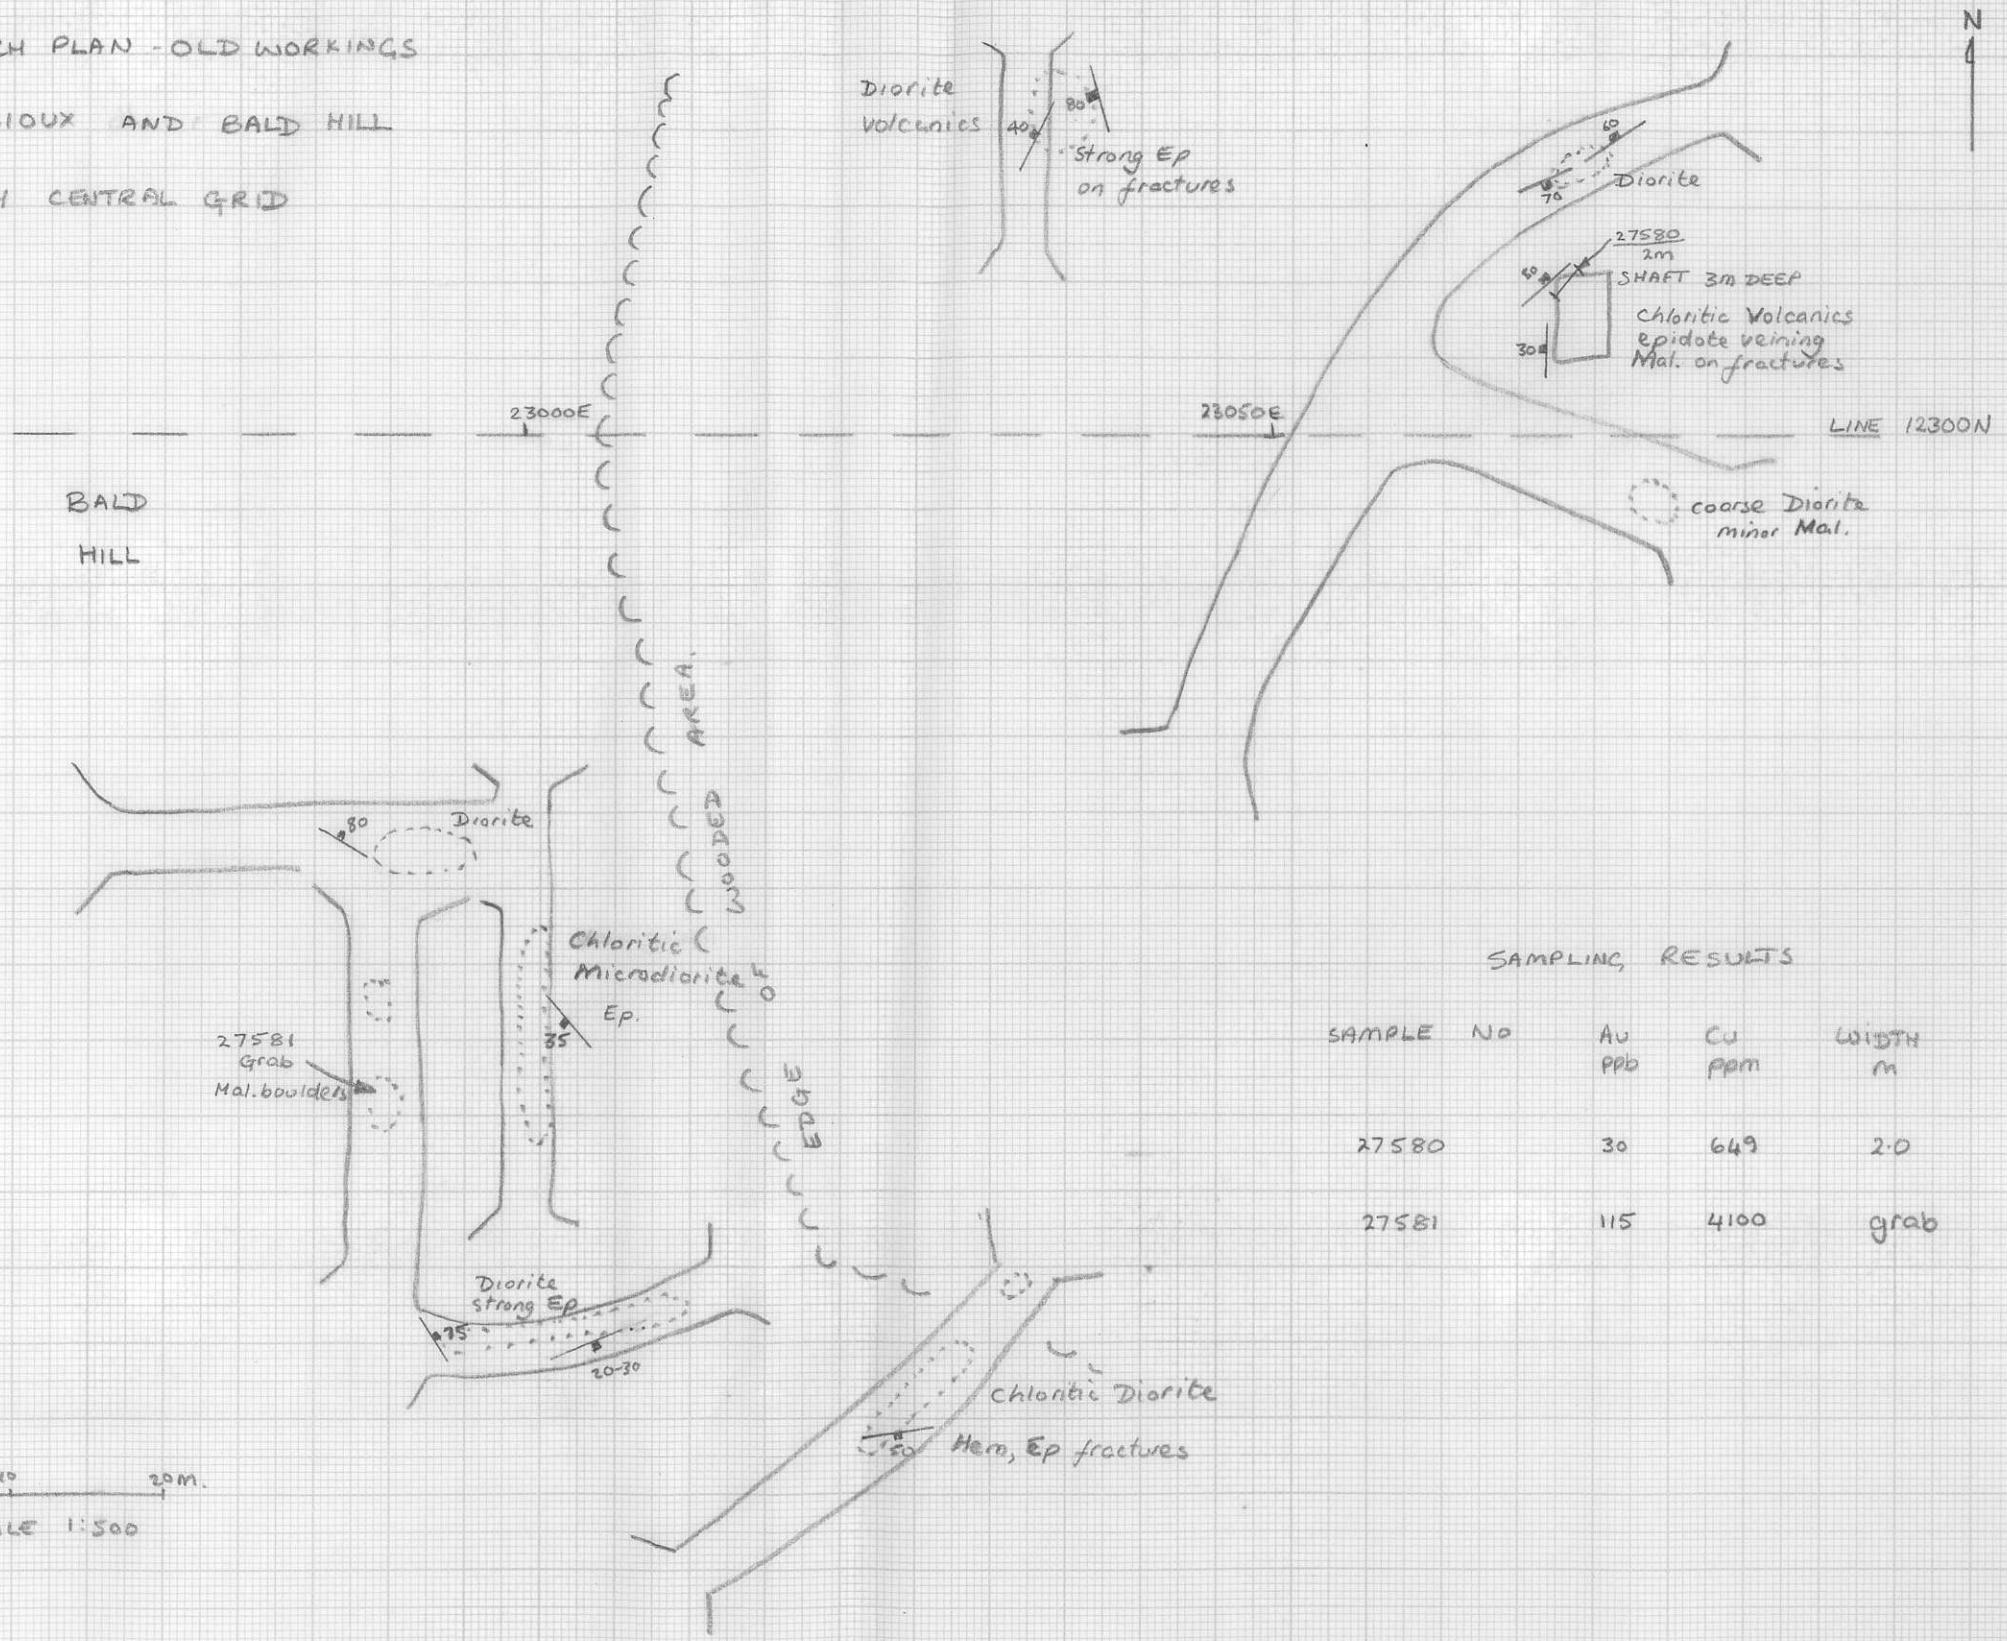 CH PLAN - OLD WORKINGS
SIOUX AND BALD HILL
CENTRAL GRID
N
Diorite
Volcanics
40
80
Strong Ep
on fractures
60
70
Diorite
27580
2m
SHAFT 3m DEEP
30
Chloritic Volcanics
epidote veining
Mal. on fractures
23000E
23050E
LINE 12300N
BALD
HILL
coarse Diorite
minor Mal.
EDGE OF WOODED AREA.
80
Diorite
Chloritic
Microdiorite
Ep.
35
27581
Grab
Mal. boulders
Diorite
strong Ep
75
20-30
Chloritic Diorite
50
Hem, Ep fractures
SAMPLING RESULTS
SAMPLE NO Au Cu WIDTH
ppb ppm m
27580 30 649 2.0
27581 115 4100 grab
10 20m.
LE 1:500